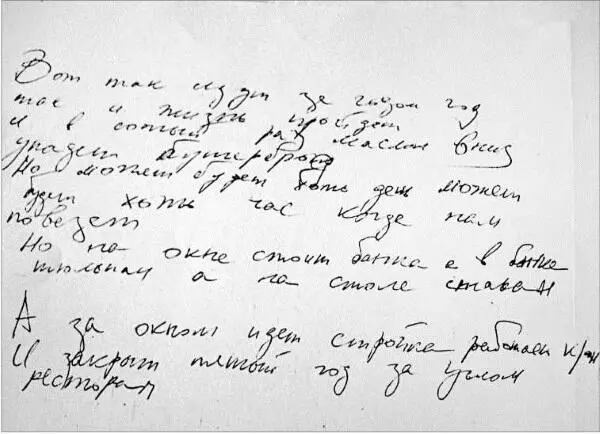 Вот так идут за годом год
так и жизнь пройдет
И в сотый раз маслом вниз
упадет бутерброд
Но может будет хоть день может
будет хоть час когда нам
повезет
Но на окне стоит банка а в банке
тюльпан а на столе стакан
А за окном идет стройка работает кран
И закрыт пятый год за углом
ресторан